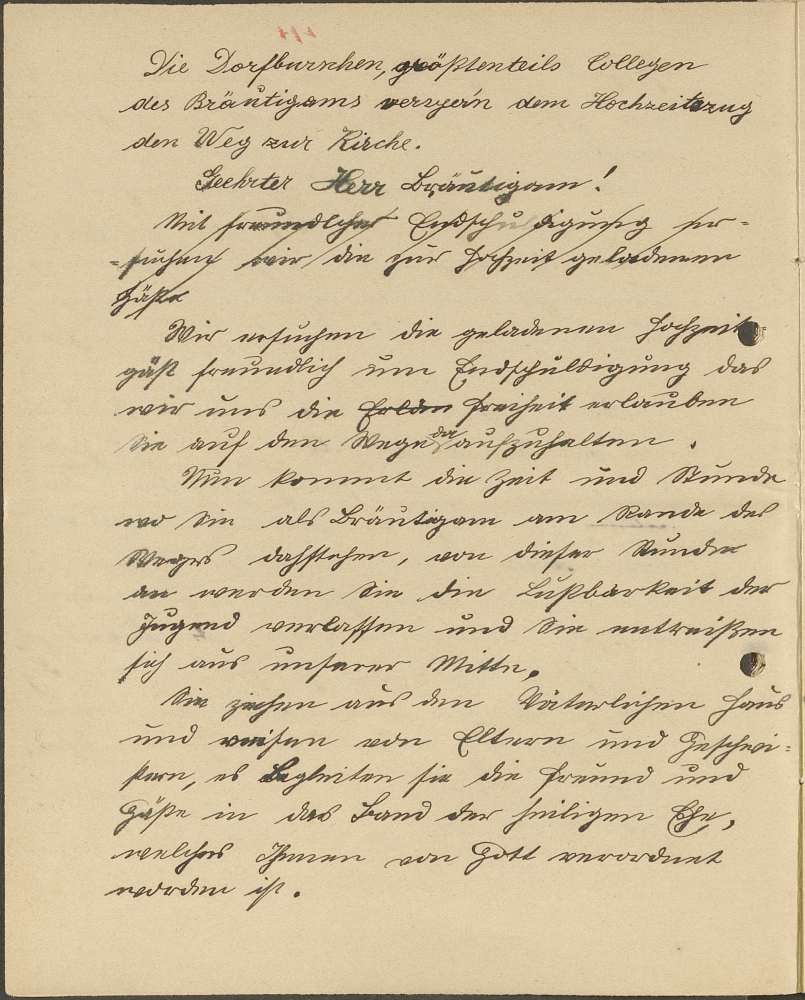 Die Dorfburschen, größtenteils Collegen
des Bräutigams versper'n dem Hochzeitszug
den Weg zur Kirche.
Geehrter Herr Bräutigam!
Mit freundlicher Endschuldigung er-
=suchen wir die zur Hochzeit geladenen
Gäste
Wir ersuchen die geladenen Hochzeits
gäst freundlich um Endschuldigung das
wir uns die Erlau Freiheit erlauben
Sie auf den Wege da aufzuhalten.
Nun kommt die Zeit und Stunde
wo Sie als Bräutigam am Rande des
Weges dahstehen, von dieser Stunde
an werden Sie die Lußbarkeit der
Jugend verlassen und Sie entreißen
sich aus unserer Mitte.
Sie ziehen aus den Väterlichen Haus
und reisen von Eltern und Geschwi=
stern, es Begleiten sie die Freund und
Gäste in das Band der heiligen Ehe,
welches Ihnen von Gott verordnet
worden ist.